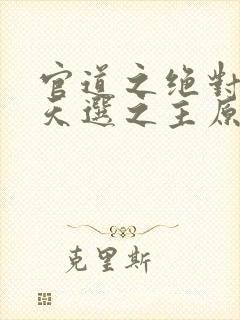 官道之绝對
天選之主原
克里斯